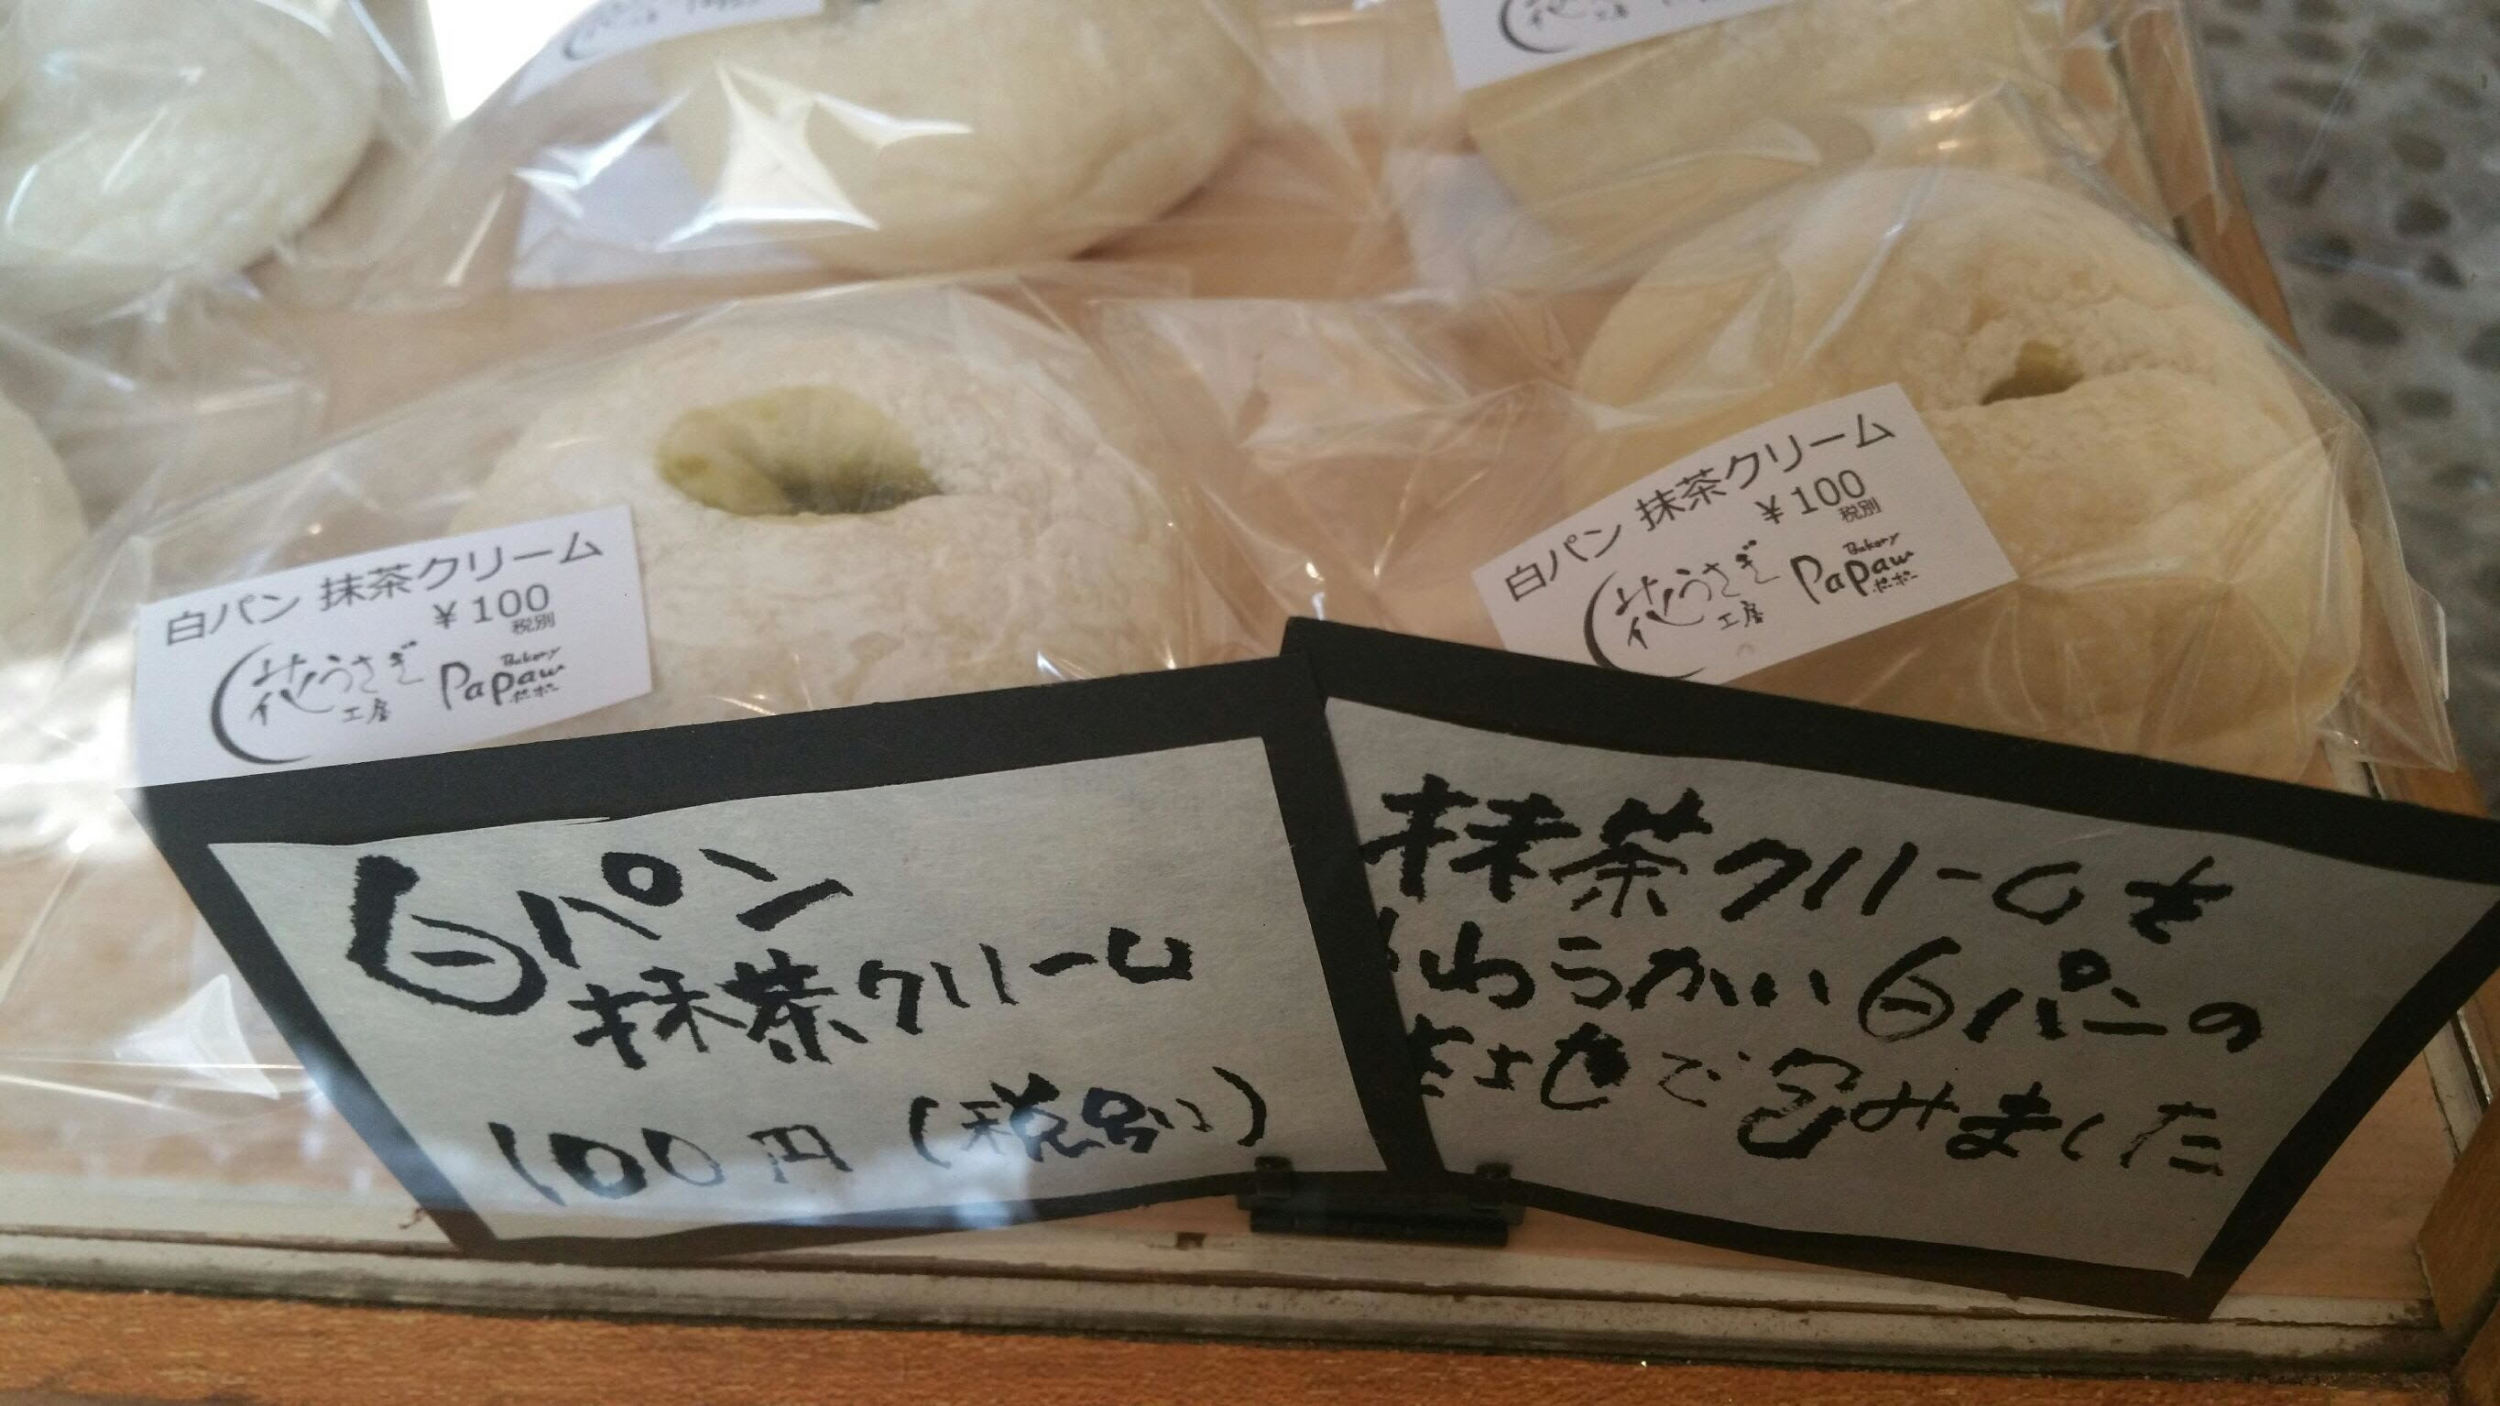 白パン 抹茶クリーム
￥100
税別
花うさぎ
工房
Bakery
Papaw
ポーポー
白パン 抹茶クリーム
￥100
税別
花うさぎ
工房
Bakery
Papaw
ポーポー
白パン
抹茶クリーム
100円(税別)
抹茶クリームを
やわらかい白パンの
生地で包みました